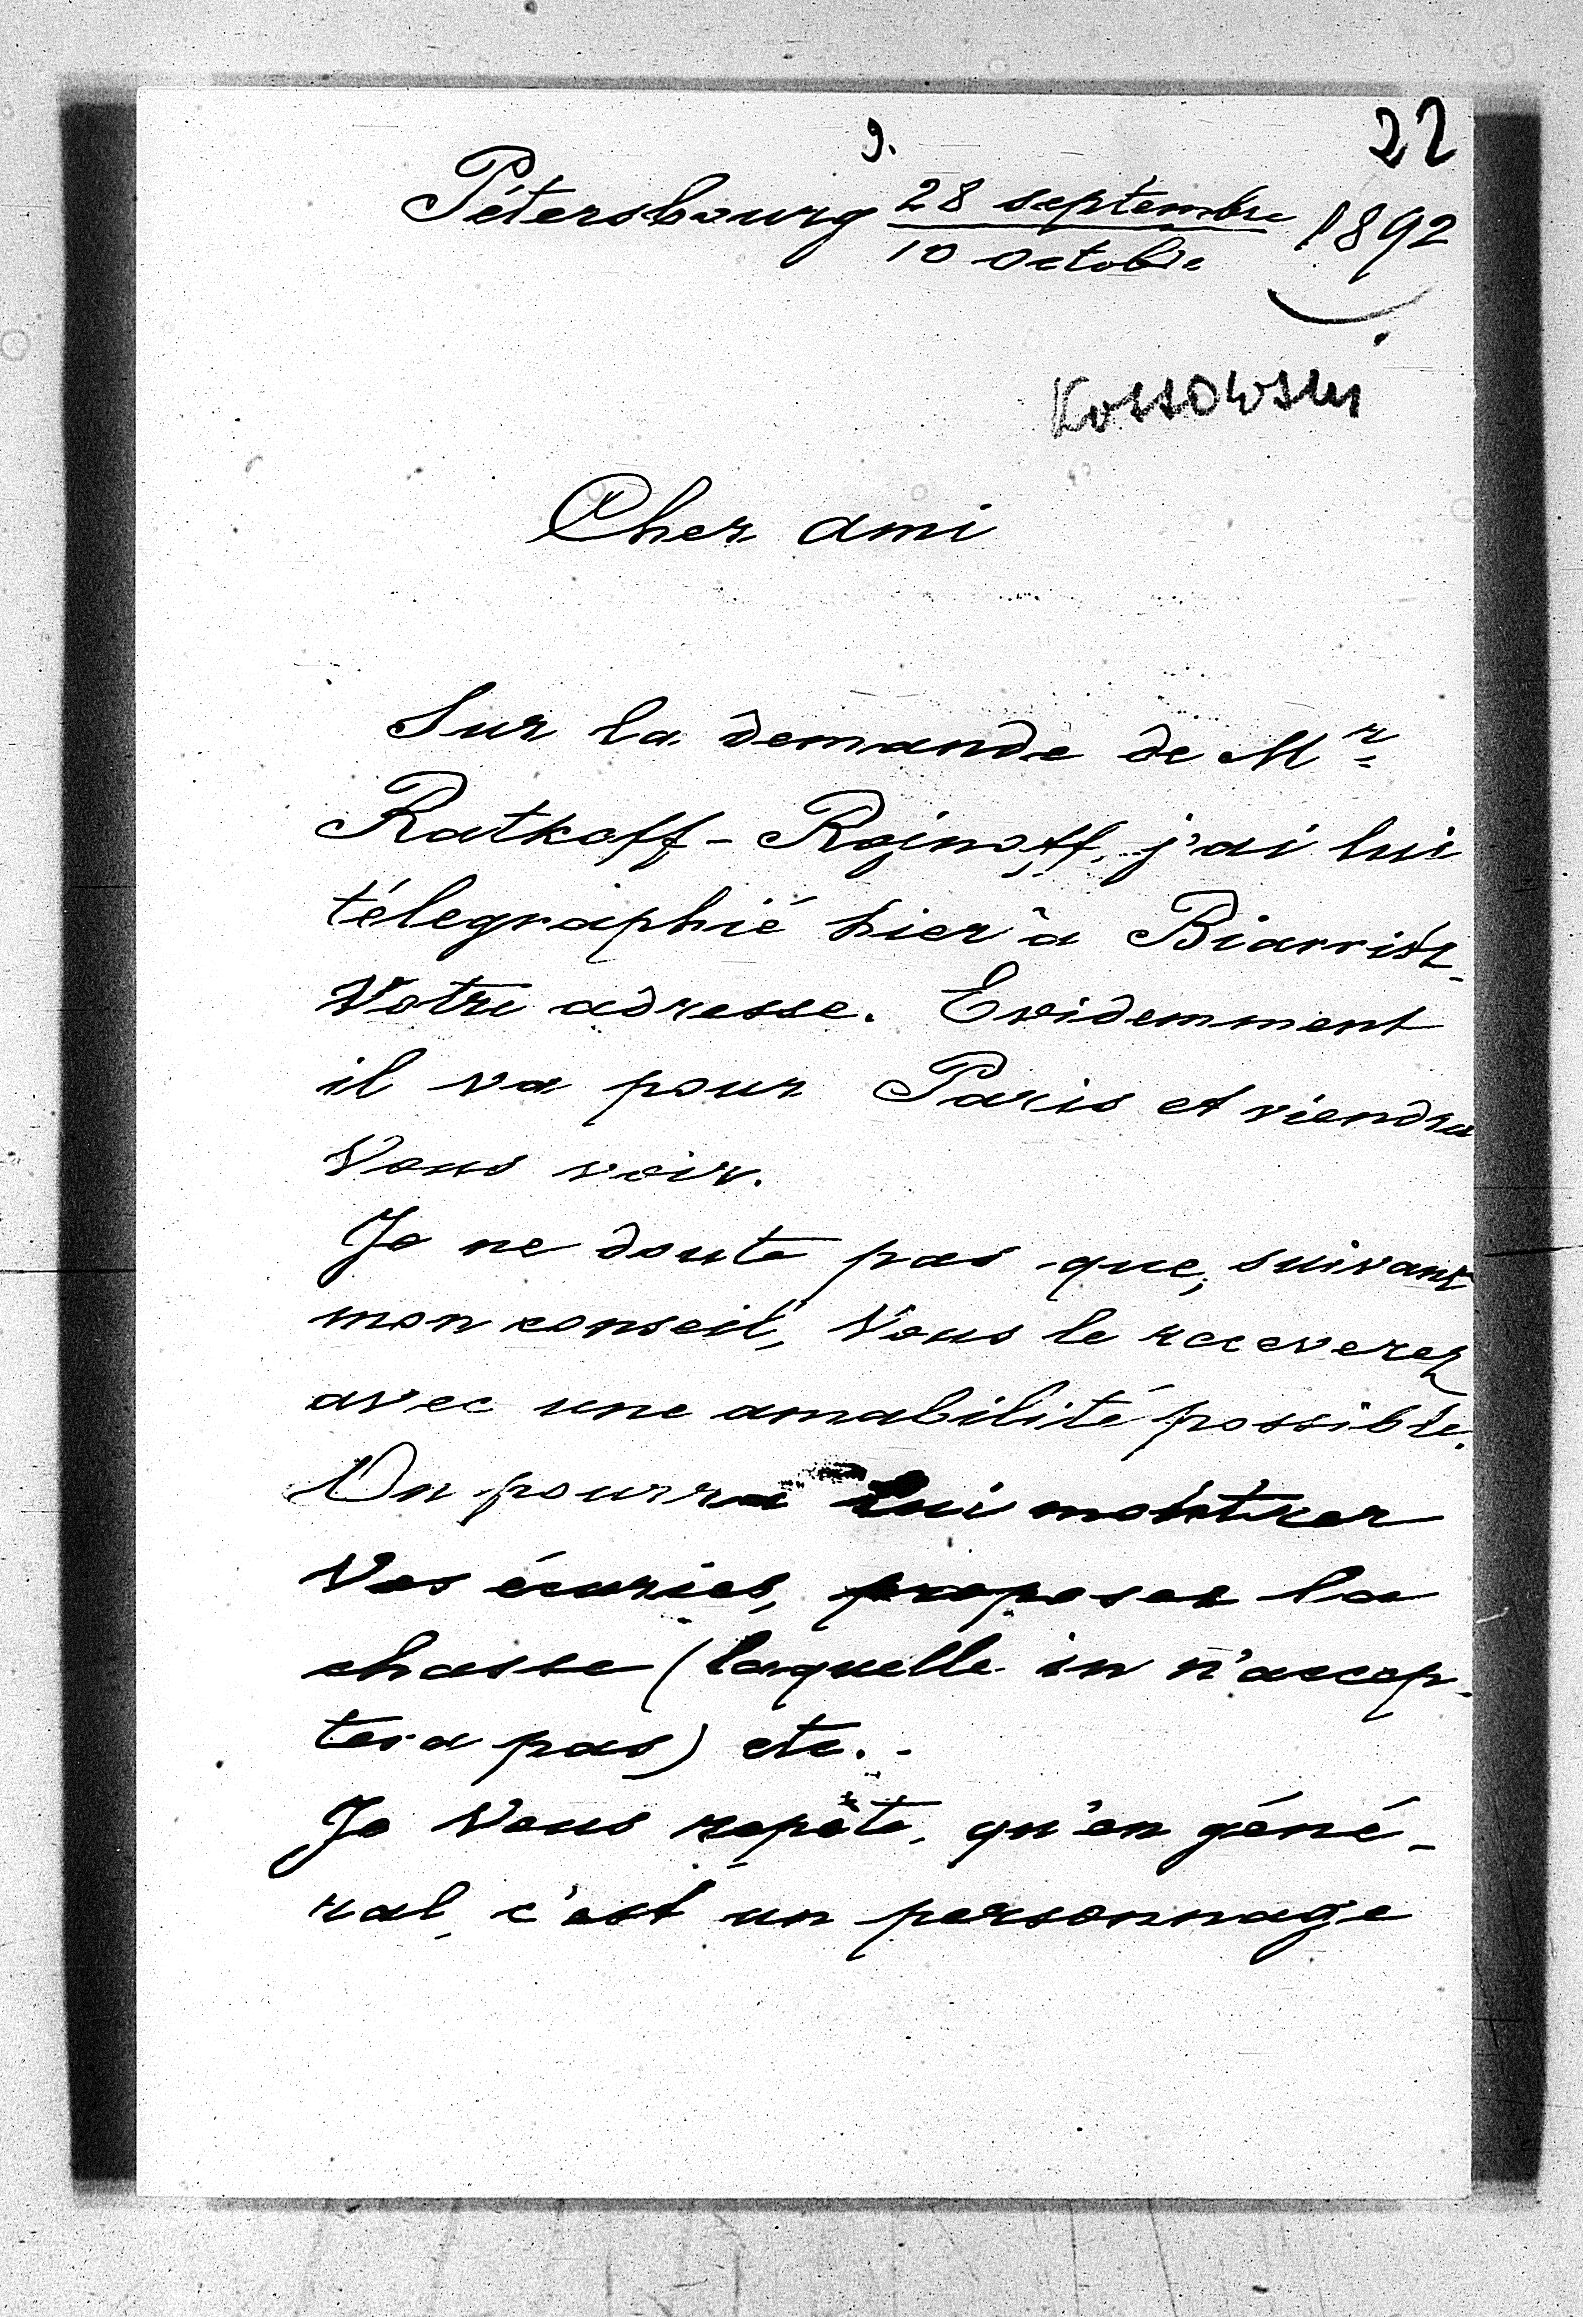 9.
22
Pétersbourg 28 septembre 1892
10 octobre
Kossowski
Cher ami
Sur la demande de Mr
Ratkoff-Rojnoff, j'ai lui
télegraphié hier à Biarritz
Votre adresse. Evidemment
il va pour Paris et viendra
Vous voir.
Je ne doute pas que, suivant
mon conseil, Vous le receverez
avec une amabilité possible.
On pourra lui montrer
Vos écuries, proposer la
chasse (laquelle in n'accep-
tera pas) etc.-
Je Vous repète, qu'en géné-
ral, c'est un personnage